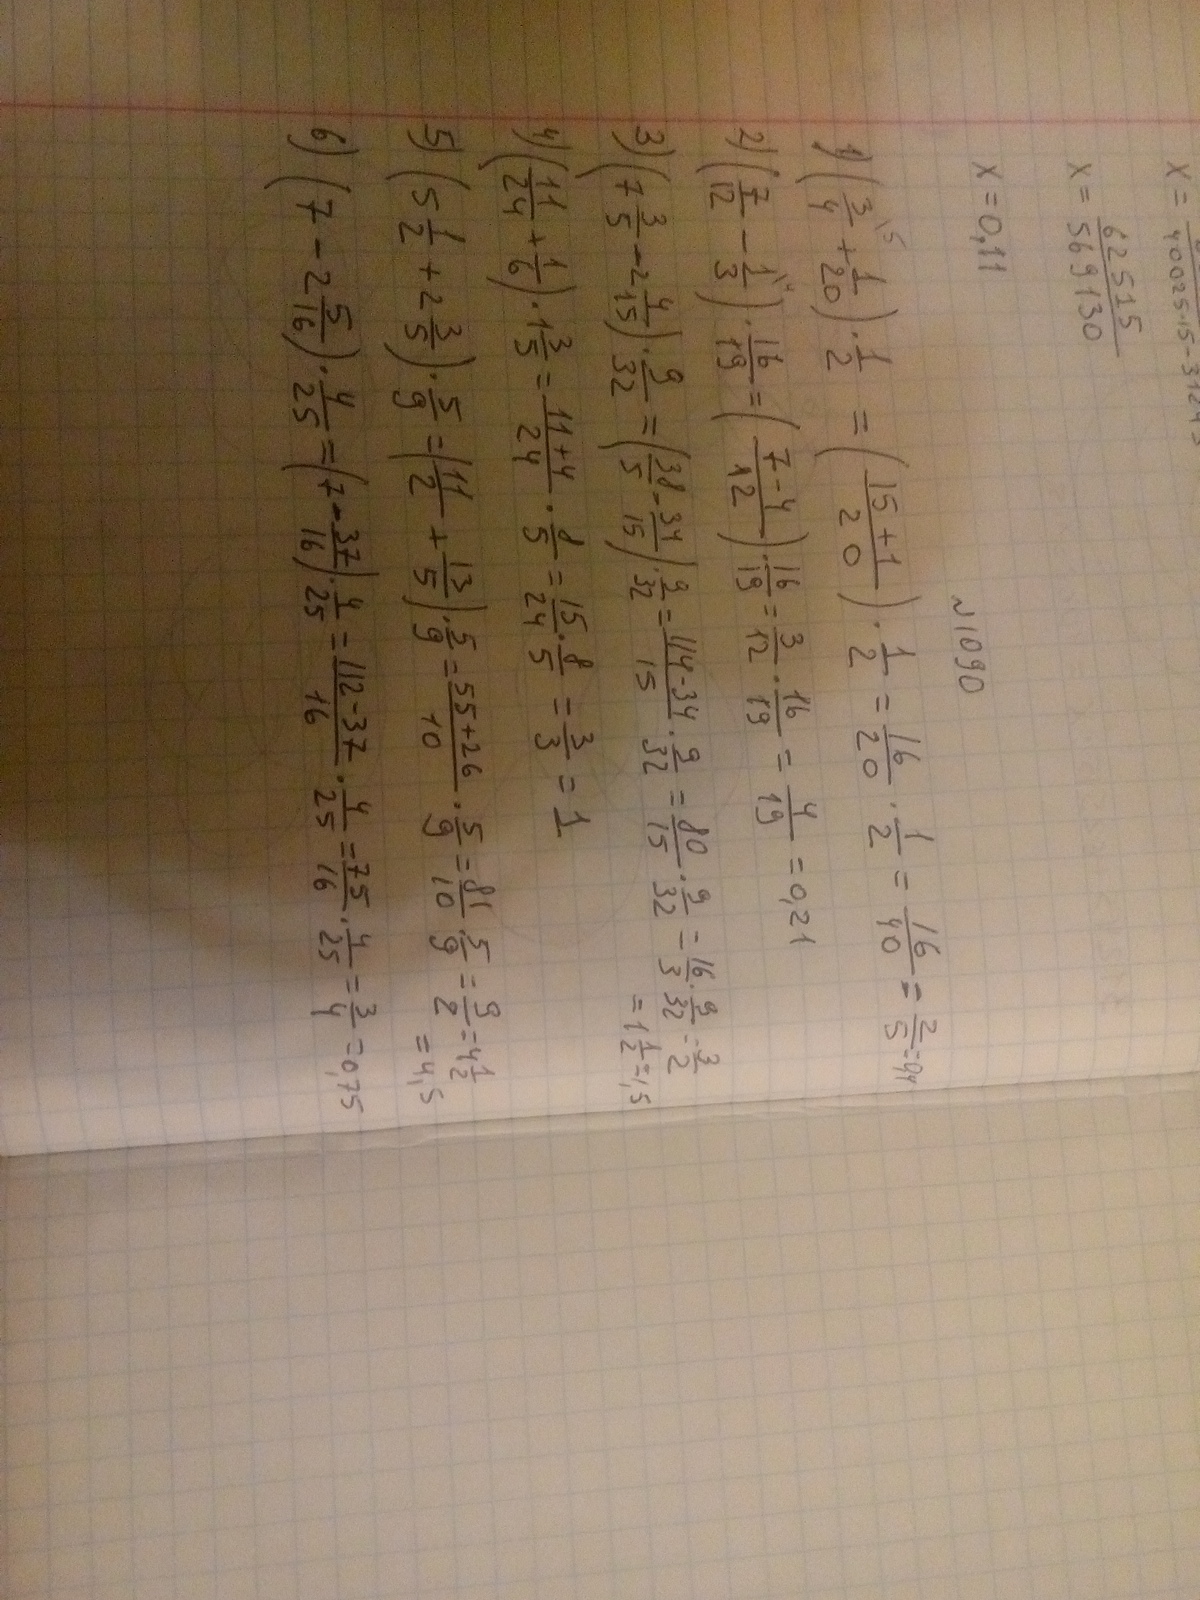 x =
40025·15-3124
x = 62515/569130
x = 0,11
№1090
1) (3/4 \5 + 1/20) · 1/2 = (15+1/20) · 1/2 = 16/20 · 1/2 = 16/40 = 2/5 = 0,4
2) (7/12 - 1/3 \4) · 16/19 = (7-4/12) · 16/19 = 3/12 · 16/19 = 4/19 = 0,21
3) (7 3/5 - 2 4/15) · 9/32 = (38/5 - 34/15) · 9/32 = 114-34/15 · 9/32 = 80/15 · 9/32 = 16/3 · 9/32 = 3/2
= 1 1/2 = 1,5
4) (11/24 + 1/6) · 1 3/5 = 11+4/24 · 8/5 = 15/24 · 8/5 = 3/3 = 1
5) (5 1/2 + 2 3/5) · 5/9 = (11/2 + 13/5) · 5/9 = 55+26/10 · 5/9 = 81/10 · 5/9 = 9/2 = 4 1/2
= 4,5
6) (7 - 2 5/16) · 4/25 = (7 - 37/16) · 4/25 = 112-37/16 · 4/25 = 75/16 · 4/25 = 3/4 = 0,75